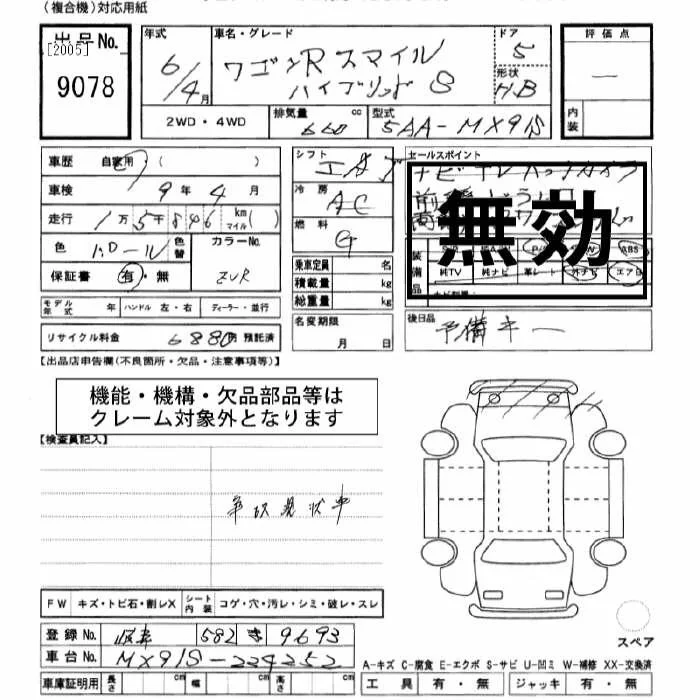 (複合機)対応用紙
出品No.
[2005]
9078
年式
6/4月
車名・グレード
ワゴンR スマイル
ハイブリッド S
ドア
5
形状
H.B
評価点
—
内装
2WD・4WD
排気量 660 cc
型式 5AA-MX91S
車歴 自家用 ( )
車検 9年4月
走行 1万5千846 km マイル ( )
色
色替
カラーNo.
ZVR
保証書 有・無
モデル年式 年 ハンドル 左・右 ディーラー・並行
リサイクル料金 6880円 預託済
シフト
冷房 AC
燃料 G
乗車定員 名
積載量 kg
総重量 kg
名変期限
月 日
セールスポイント
無効
装備品
ABS
純TV 純ナビ 革シート 外ナビ エアB
後日品
予備キー
【出品店申告欄(不良箇所・欠品・注意事項等)】
機能・機構・欠品部品等は
クレーム対象外となります
【検査員記入】
事故現状車
FW キズ・トビ石・割レX シート内装 コゲ・穴・汚レ・シミ・破レ・スレ
登録No. 岐阜 582 き 9693
車台No. MX91S-224252
車庫証明用 長さ cm 幅 cm 高さ cm
スペア
A-キズ C-腐食 E-エクボ S-サビ U-凹ミ W-補修 XX-交換済
工具 有・無 ジャッキ 有・無